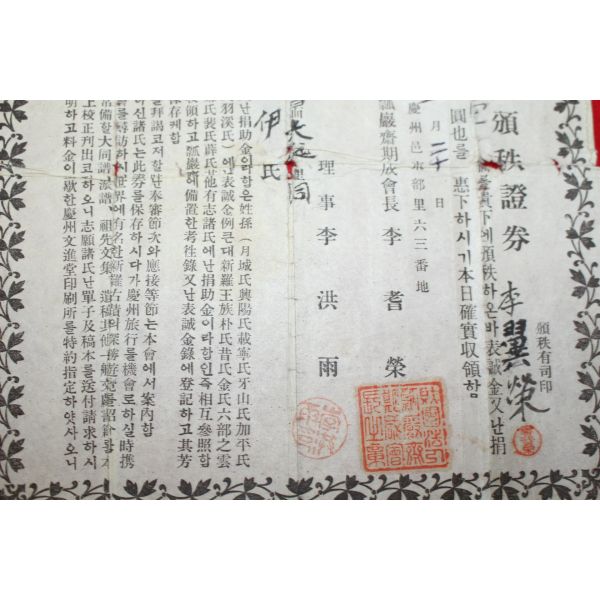 頒秩有司印
李翼榮
頒秩證券
下에頒秩하온바表誠金又난捐
圓也를 惠下하시기本日確實取領함
月二十 日
慶州邑東部里六三番地
瓢巖齋期成會長 李 耆 榮
理事 李 洪 雨
伊 氏
난捐助金이라함은姓孫(月城氏興陽氏載寧氏牙山氏加平氏
羽溪氏)에난表誠金例큰대新羅王族朴氏昔氏金氏六部之雲
氏裴氏薛氏其他有志諸氏에난捐助金이라함인즉相互參照함
領하고瓢巖齋에備置한考往錄又난表誠金錄에登記하고其芳
保存케함
拜謁코저할난奉審節次와應接等節는本會에서案內함
하신諸氏는此券를保存하시다가慶州旅行를機會로하실時携
를尋訪하시世界에有名한新羅古蹟의探勝
常備할大同譜派譜、祖先文集、遺稿其他
上校正刊出코하오니志願諸氏난單子及稿本를送付請求하시
明하고料金이歇한慶州文進堂印刷所를特約指定하얏사오니